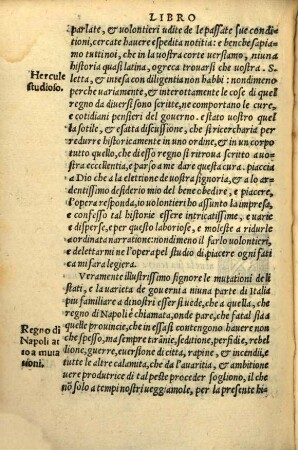 LIBRO
parlate, & volontieri udite de le passate sue condi
tioni, cercate hauere espedita notitia: e benche sapia
mo tuttinoi, che in la uostra corte uersiamo, niuna
historia quasi latina, ogreca trouarsi che uostra S.
letta, & intesa con diligentia non habbi: nondimeno
perche uariamente, & interottamente le cose di quel
regno da diuersi sono scritte, ne comportano le cure, e
cotidiani pensieri del gouerno. e stato uostro quel
la sotile, e esatta discussione, che si ricercharia per
redurre historicamente in uno ordine, & in un corpo
tutto quello, che di esso regno si ritroua scritto a uo
stra eccellentia, e parso a me dare questa cura. piaccia
a Dio che a la elettione de uostra signoria, & a lo ar
dentissimo desiderio mio del bene obedire, e piacere,
l'opera responda, io uolontieri ho assunto la impresa,
e confesso tal historie essere intricatissime, e uarie
e disperse, e per questo laboriose, e moleste a ridurle
a ordinata narratione: nondimeno il farlo uolontieri,
e delettarmi ne l'opera pel studio di piacere ogni fati
ca mi fara legiera.
Veramente illustrissimo signore le mutationi de li
stati, e la uarieta de gouerni a niuna parte di Italia
piu familiare a dinostri esser si uede, che a quella, che
regno di Napoli è chiamata, onde pare, che fatal sia a
quelle prouincie, che in essa si contengono hauere non
che spesso, ma sempre tirānie, seditione, perfidie, rebel
lione, guerre, euersione di citta, rapine, & incendii, e
tutte le altre calamita, che da l'auaritia, & ambitione
uere produtrice di tal peste proceder sogliono, il che
nō solo a tempi nostri ueggiamole, per la presente hi-
Hercule
studioso.
Regno di
Napoli at
to a muta
tioni.